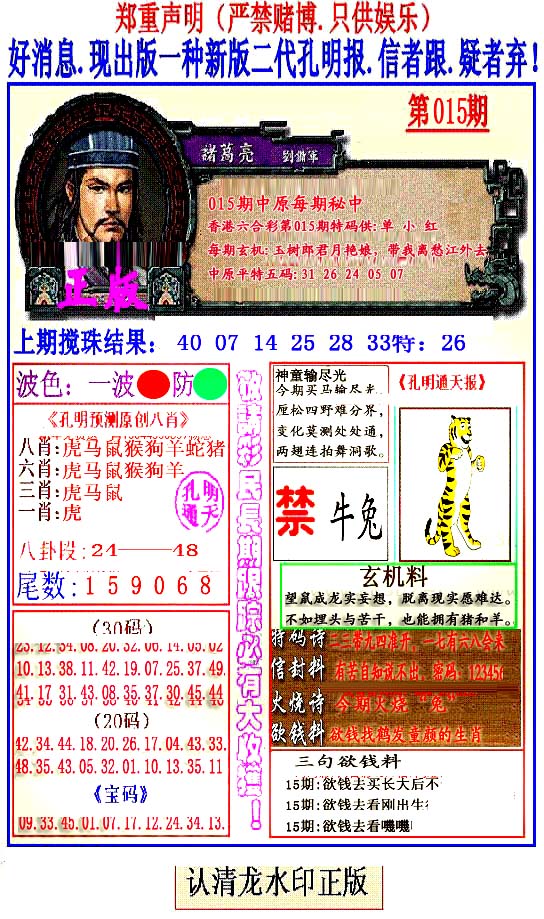 郑重声明（严禁赌博.只供娱乐）
好消息.现出版一种新版二代孔明报.信者跟.疑者弃!
第015期
諸葛亮 劉備軍
015期中原每期秘中
香港六合彩第015期特码供: 单 小 红
每期玄机: 玉树郎君月艳娘，带我离愁江外去
中原平特五码: 31 26 24 05 07
正版
上期搅珠结果： 40 07 14 25 28 33特：26
波色：一波 防
《孔明预测原创八肖》
八肖:虎马鼠猴狗羊蛇猪
六肖:虎马鼠猴狗羊
三肖:虎马鼠
一肖:虎
孔明通天
八卦段:24——48
尾数:159068
(30码)
23.12.34.08.20.32.06.14.03.02
10.13.38.11.42.19.07.25.37.49
41.17.31.43.08.35.37.30.45.44
(20码)
42.34.44.18.20.26.17.04.43.33.
48.35.43.05.32.01.10.13.35.11
《宝码》
09.33.45.01.07.17.12.24.34.13.
欲請彩民長期跟踪必有大收獲！
神童输尽光
今期买马输尽光
厘松四野难分界，
变化莫测处处通，
两翅连拍舞洞歌。
《孔明通天报》
禁 牛兔
玄机料
望鼠成龙实妄想，脱离现实愿难达。
不如埋头与苦干，也能拥有猪和羊。
特码诗 二三带九四准开，一七有六八会来
信封料 有苦自知说不出，密码：123456
火烧诗 今期火烧“兔”
欲钱料 欲钱找鹤发童颜的生肖
三句欲钱料
15期:欲钱去买长大后不
15期:欲钱去看刚出生
15期:欲钱去看嘰嘰
认清龙水印正版